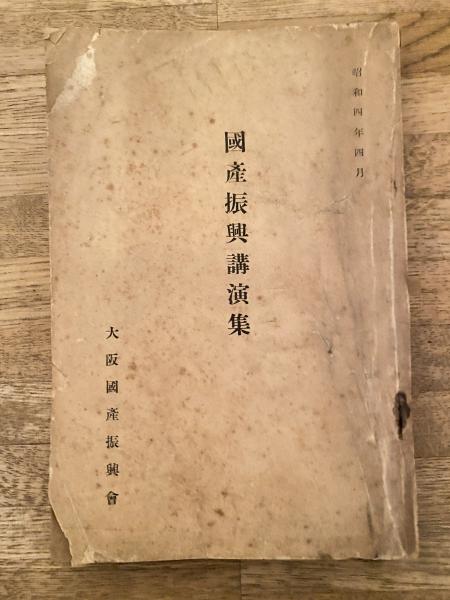 昭和四年四月
國產振興講演集
大阪國產振興會